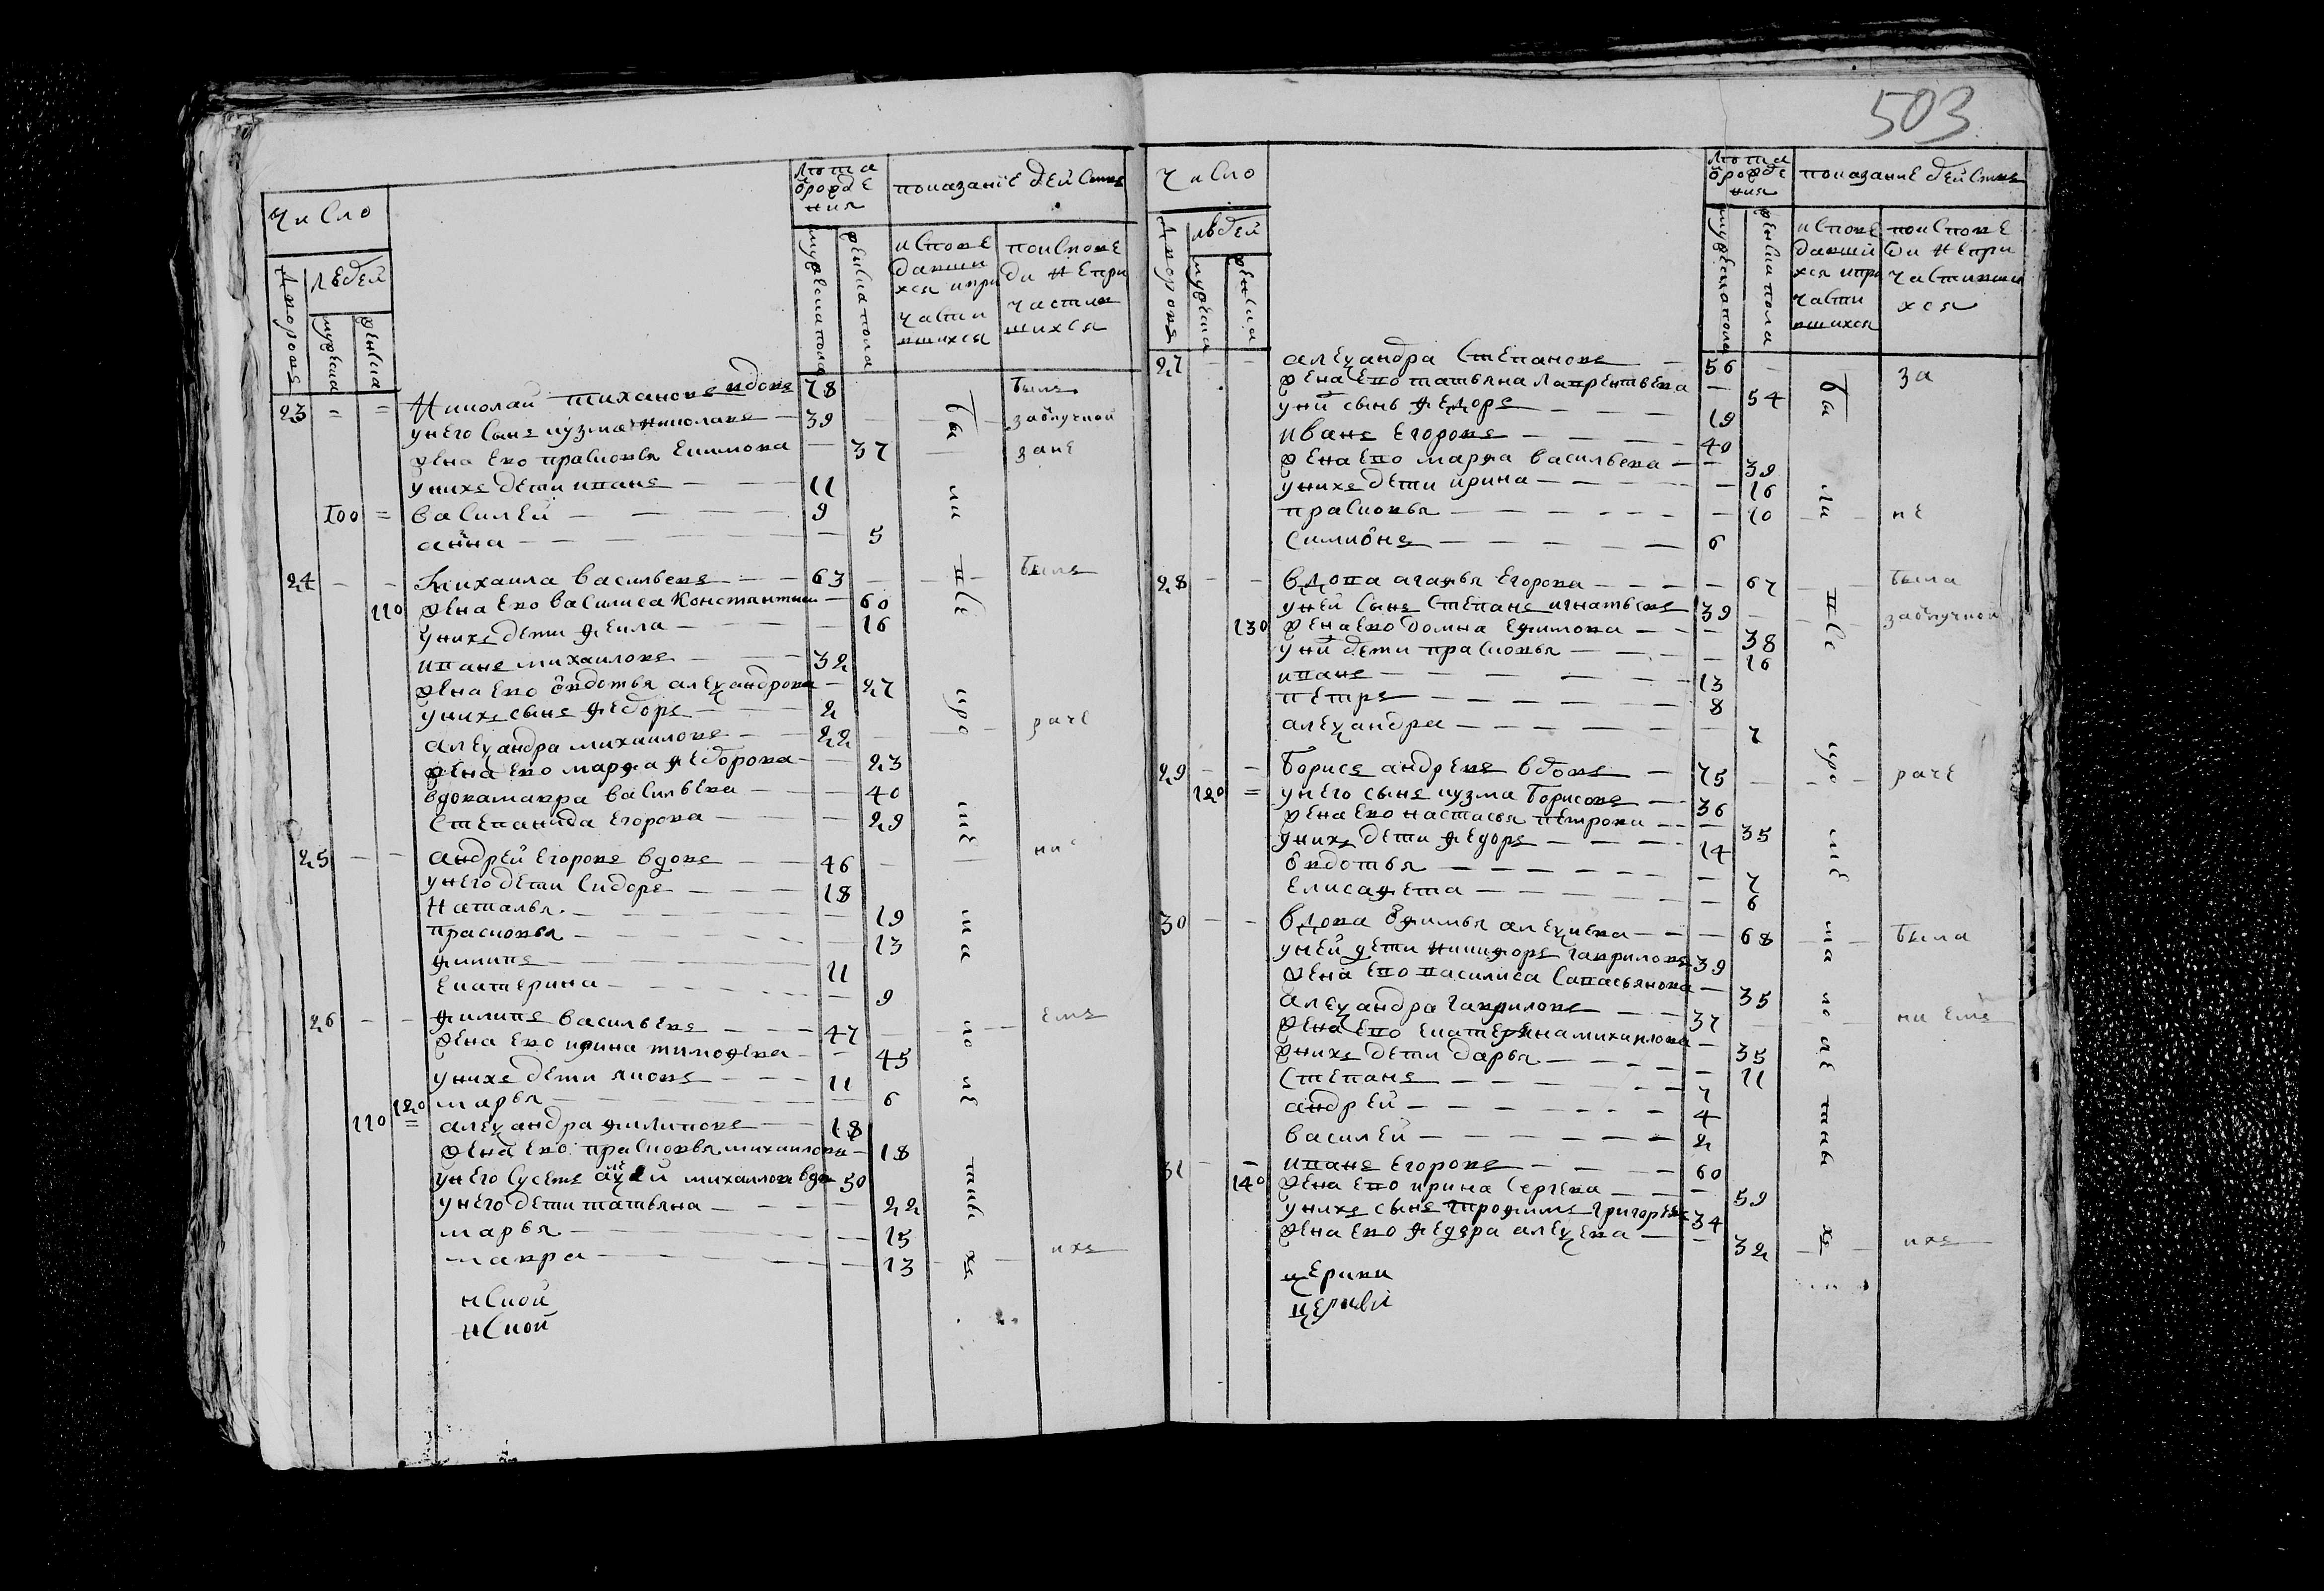 503
число
лета от рожде ния
показание действъ
дворовъ
людей
мужеска
женска
мужеска пола
женска пола
исповедавши хся и при части вшихся
по исповеди не при частившихся
23 = = Николай Тихановъ вдовъ 78
у него сынъ Кузма Николаевъ 39
жена ево прасковья Екимова 37
у нихъ дети иванъ 11
100 = василей 9
анна 5
24 михаила васильевъ 63
110 жена ево василиса константинова 60
у нихъ дети фекла 16
иванъ михаиловъ 32
жена ево овдотья александрова 27
у нихъ сынъ федоръ 2
александра михаиловъ 22
жена ево марфа федорова 23
вдова мавра васильева 40
степанида егорова 29
25 андрей егоровъ вдовъ 46
у него дети сидоръ 18
наталья 19
прасковья 13
филипъ 11
екатерина 9
26 филипъ васильевъ 47
жена ево ирина тимофева 45
у нихъ дети яковъ 11
120 марья 6
110 = александра филиповъ 18
жена ево прасковья михаилова 18
у него суседъ алексей михаиловъ вдовъ 50
у него дети татьяна 22
марья 15
мавра 13
нской
нской
были у сего причастия
былъ
заблучной
зане
былъ
раче
ниемъ
ихъ
число
лета от рожде ния
показание действъ
дворовъ
людей
мужеска
женска
мужеска пола
женска пола
исповедавшихся и при части вшихся
по исповеди не при частивши хся
27 александра степановъ 56
жена ево татьяна лаврентьева 54
у них сынъ федоръ 19
иванъ егоровъ 40
жена ево марфа васильева 39
у нихъ дети ирина 16
прасковья 10
симионъ 6
28 вдова агафья егорова 67
у ней сынъ степанъ игнатьевъ 39
130 жена ево домна ефимова 38
у них дети прасковья 16
иванъ 13
петръ 8
александра 7
29 борисъ андревъ вдовъ 75
120 = у него сынъ кузма борисовъ 36
жена ево настасья петрова 35
у нихъ дети федоръ 14
овдотья 7
елисафета 6
30 вдова офимья алексиева 68
у ней дети никифоръ гавриловъ 39
жена ево василиса савастьянова 35
александра гавриловъ 37
жена ево екатерина михаилова 35
у нихъ дети дарья 11
степанъ 7
андрей 4
василей 2
31 иванъ егоровъ 60
140 жена ево ирина сергева 59
у нихъ сынъ трофимъ григорьевъ 34
жена ево федора алексева 32
церкви
церквй
за
не
была
заблучной
раче
была
ниемъ
ихъ